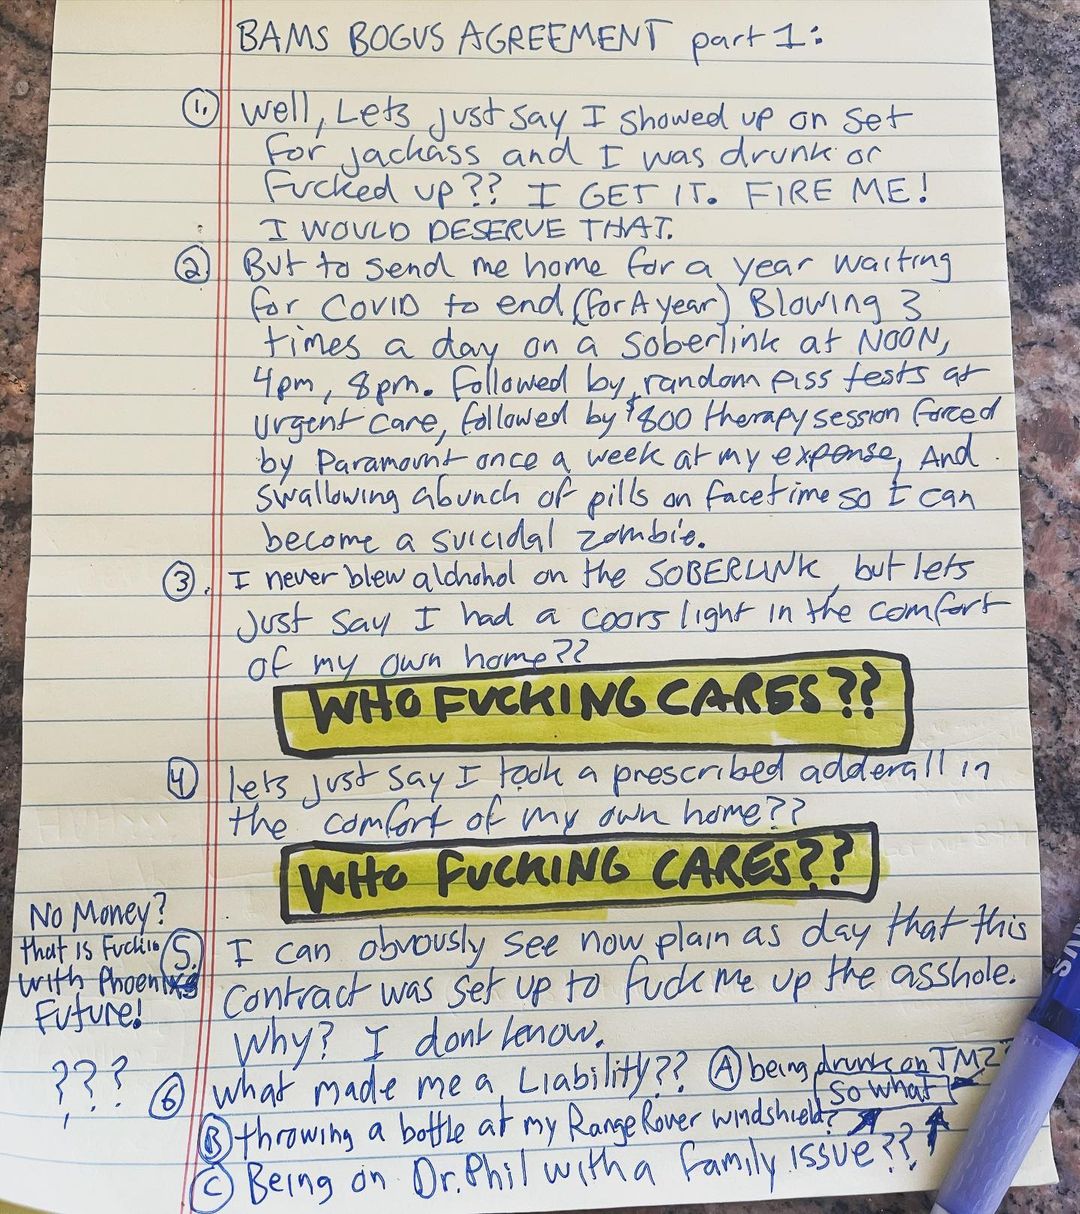 BAMS BOGUS AGREEMENT part 1:
1. Well, Lets just say I showed up on set
for jackass and I was drunk or
fucked up?? I GET IT. FIRE ME!
I WOULD DESERVE THAT.
2 But to send me home for a year waiting
for COVID to end (for A year) Blowing 3
times a day on a soberlink at NOON,
4pm, 8pm. followed by random piss tests at
urgent care, followed by $800 therapy session forced
by Paramount once a week at my expense, And
swallowing abunch of pills on facetime so I can
become a suicidal zombie.
3. I never blew alchohol on the SOBERLINK, but lets
just say I had a coors light in the comfort
of my own home??
WHO FUCKING CARES??
4 lets just say I took a prescribed adderall in
the comfort of my own home??
WHO FUCKING CARES??
No Money?
that is Fuckin
with Phoenixs
Future!
???
5. I can obvously see now plain as day that this
contract was set up to fuck me up the asshole.
Why? I dont know.
6 what made me a Liability?? A being drunk on TMZ?
So what
B throwing a bottle at my Range Rover windshield?
C Being on Dr. Phil with a family issue??